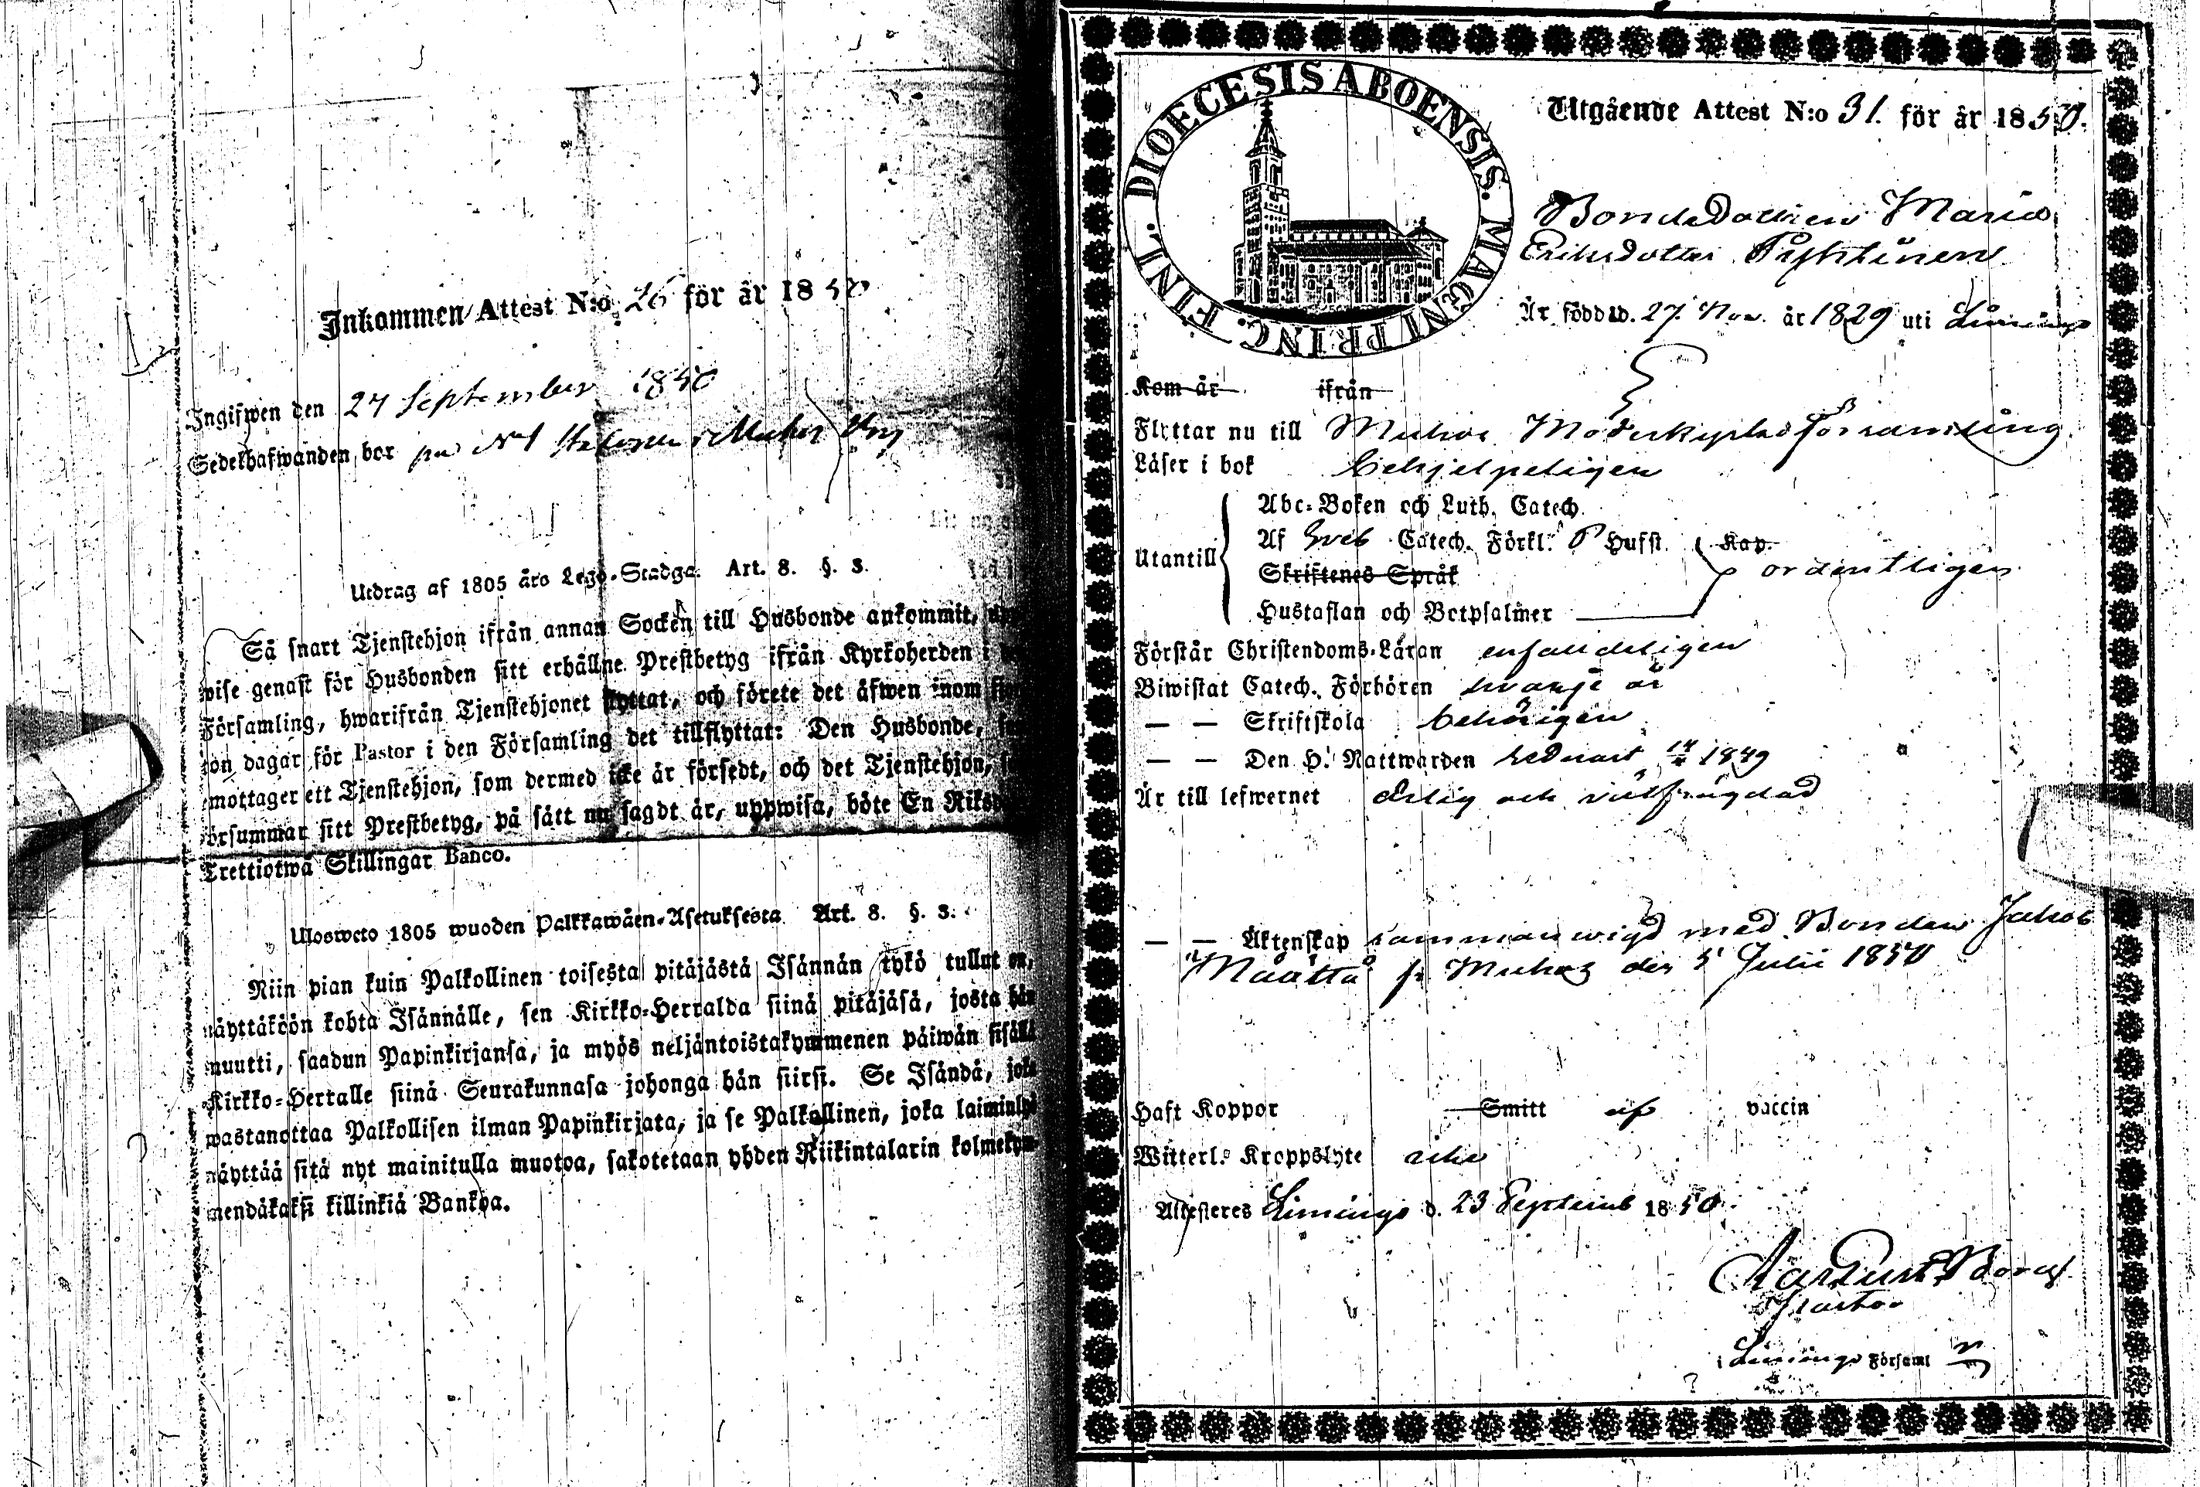 Inkommen Attest N:o 26 för år 1850
Ingifwen den 27 September 1850
Sedelhafwanden bor på N:o 1
Utdrag af 1805 års Lego-Stadga Art. 8. §. 3.
Så snart Tjenstehjon ifrån annan Socken till Husbonde ankommit,
wise genast för Husbonden sitt erhållne Prestbetyg ifrån Kyrkoherden i
Församling, hwarifrån Tjenstehjonet flyttat, och förete det äfwen inom
ton dagar för Pastor i den Församling det tillflyttat: Den Husbonde,
emottager ett Tjenstehjon, som dermed icke är försedt, och det Tjenstehjon,
försummar sitt Prestbetyg, på sätt nu sagdt är, uppwisa, böte En
Trettiotwå Skillingar Banco.
Ulosweto 1805 wuoden Palkkawäen-Asetuksesta Art. 8. §. 3.
Niin pian kuin Palkollinen toisesta pitäjästä Isännän tykö tullut on,
näyttäköön kohta Isännälle, sen Kirkko-Herralda siinä pitäjäsä, josta hän
muutti, saadun Papinkirjansa, ja myös neljäntoistakymmenen päiwän sisällä
Kirkko-Herralle siinä Seurakunnasa johonga hän siirsi. Se Isändä, joka
wastanottaa Palkollisen ilman Papinkirjata, ja se Palkollinen, joka laiminlyö
näyttää sitä nyt mainitulla muotoa, sakotetaan yhden Riikintalarin kolmekym-
mendäkaksi killinkiä Bankoa.
DIOECESIS ABOENSIS. MAGNI PRINC. FINL.
Utgående Attest N:o 31. för år 1850.
BondeDottren Maria
Eriksdotter
Är född d. 27. Nov. år 1829 uti Limingo
Kom år ifrån
Flyttar nu till Muhos Moderkyrko församling
Läser i bok behjelpeligen
Utantill
Abc-Boken och Luth. Catech.
Af Sveb Catech. Förkl. Hufst. Kap.
Skriftenes Språk
ordentligen
Hustaflan och Botpsalmer
Förstår Christendoms-Läran enfaldeligen
Biwistat Catech. Förhören hvarje år
— — Skriftskola behörigen
— — Den H. Nattwarden sednast 1849
Är till lefwernet ärlig och välfrägdad
— — Äktenskap sammanvigd med Bonden Jakob
Määttä fr Muhos den 5 Julii 1850
Haft Koppor Smitt af vaccin
Witterl. Kroppslyte icke
Attesteres Limingo d. 23 Septemb 1850.
Pastor
i Limingo Församl